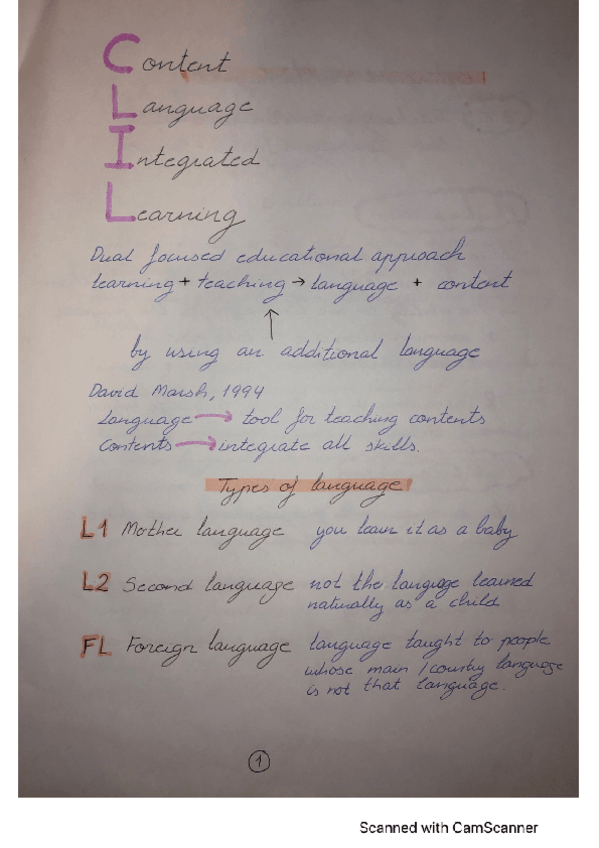 Content
Language
Integrated
Learning
Dual focused educational approach
learning + teaching → language + content
↑
by using an additional language
David Marsh, 1994
Language → tool for teaching contents
Contents → integrate all skills.
Types of language
L1 Mother language you learn it as a baby
L2 Second language not the language learned
naturally as a child
FL Foreign language language taught to people
whose main / country language
is not that language.
1
Scanned with CamScanner